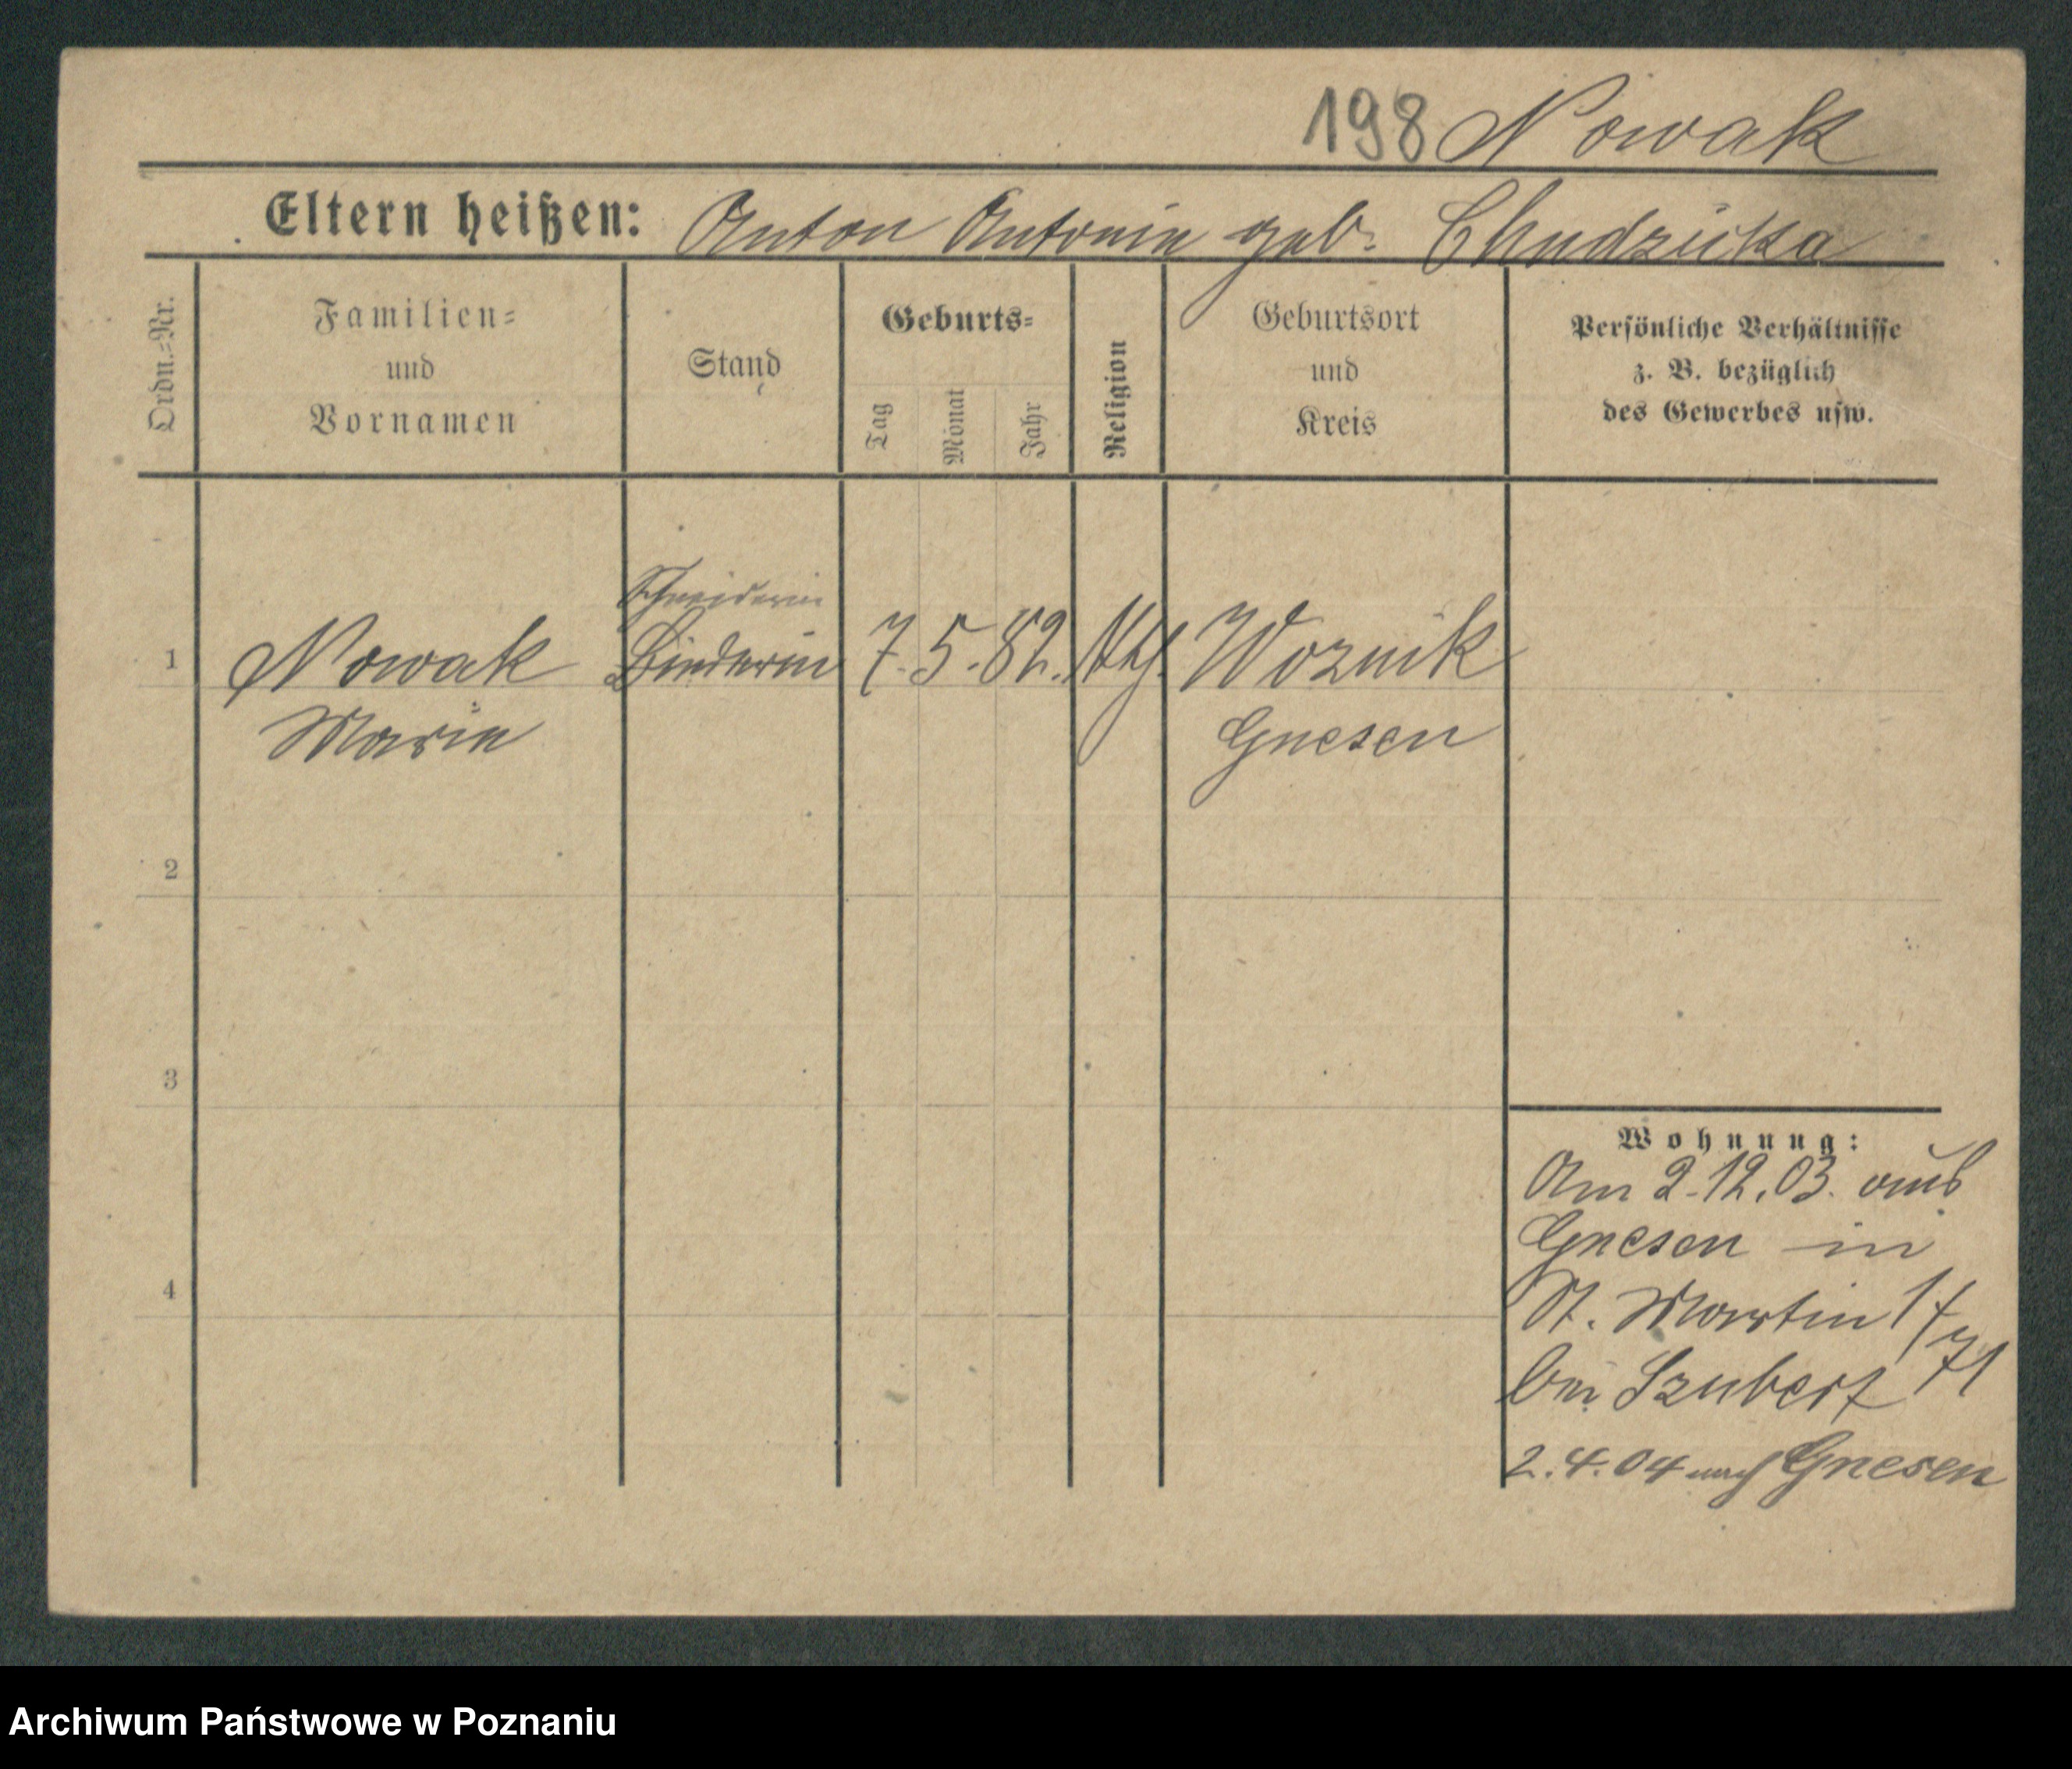 198 Nowak
Eltern heißen: Anton Antonie geb. Chudzicka
Ordn.=Nr.
Familien=
und
Vornamen
Stand
Geburts=
Tag
Monat
Jahr
Religion
Geburtsort
und
Kreis
Persönliche Verhältnisse
z. B. bezüglich
des Gewerbes usw.
Schneiderin
1 Nowak Binderin 7. 5. 82. kth. Woznik
Marie Gnesen
2
3
4
Wohnung:
Am 2.12.03. aus
Gnesen in
St. Martin 17/71
bei Szubert
2.4.04 nach Gnesen
Archiwum Państwowe w Poznaniu